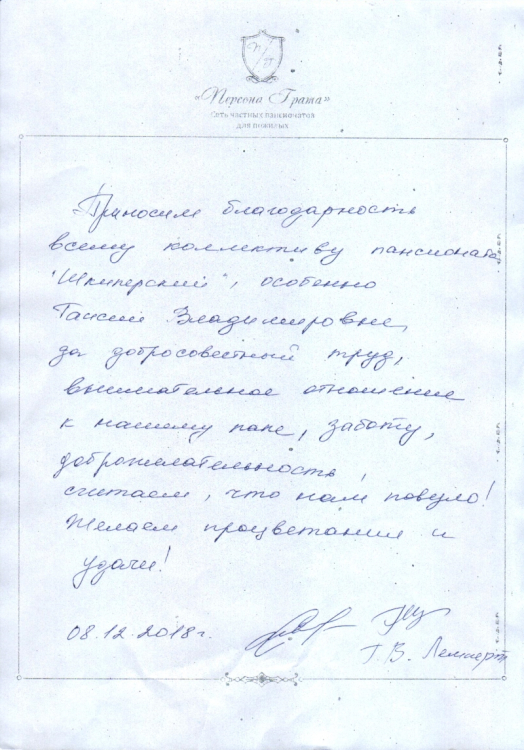 П
П
«Персона Грата»
Сеть частных пансионатов
для пожилых
Приносим благодарность
всему коллективу пансионата
"Шкиперский", особенно
Таисии Владимировне,
за добросовестный труд,
внимательное отношение
к нашему папе, заботу,
доброжелательность,
считаем, что нам повезло!
Желаем процветания и
удачи!
08.12.2018г.
Т.В.